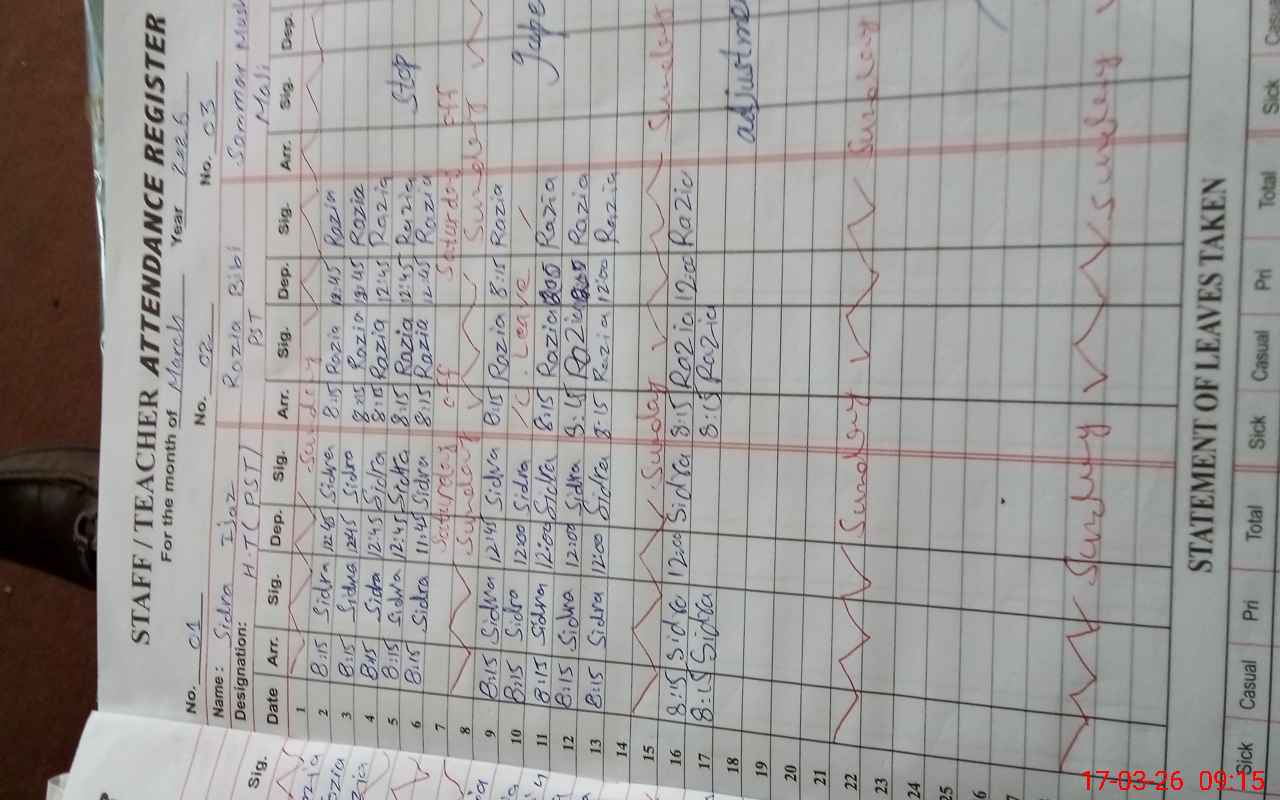 STAFF / TEACHER ATTENDANCE REGISTER
For the month of March Year 2026
No. 01 No. 02 No. 03
Name : Sidra Ijaz Razia Bibi
Designation: H.T ( PST ) PST Mali
Date Arr. Sig. Dep. Sig. Arr. Sig. Dep. Sig. Arr. Sig. Dep.
1 Sunday
2 8:15 Sidra 12:45 Sidra 8:15 Razia 12:45 Razia
3 8:15 Sidra 12:45 Sidra 8:15 Razia 12:45 Razia
4 8:15 Sidra 12:45 Sidra 8:15 Razia 12:45 Razia
5 8:15 Sidra 12:45 Sidra 8:15 Razia 12:45 Razia Stop
6 8:15 Sidra 11:45 Sidra 8:15 Razia 12:45 Razia
7 Saturday off Saturday off
8 Sunday Sunday
9 8:15 Sidra 12:45 Sidra 8:15 Razia 8:15 Razia
10 8:15 Sidra 12:00 Sidra Leave
11 8:15 Sidra 12:00 Sidra 8:15 Razia Razia
12 8:15 Sidra 12:00 Sidra 8:15 Razia Razia
13 8:15 Sidra 12:00 Sidra 8:15 Razia 12:00 Razia
14
15 Sunday Sunday
16 8:15 Sidra 12:00 Sidra 8:15 Razia 12:00 Razia
17 8:15 Sidra 8:15 Razia
18 adjustme
19
20
21
22 Sunday Sunday
23
24
25
6
7
Sunday Sunday
STATEMENT OF LEAVES TAKEN
Sick Casual Pri Total Sick Casual Pri Total Sick
Sig.
17-03-26 09:15